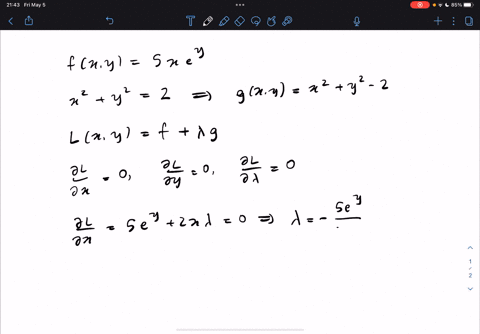 21:43 Fri May 5
85%
f(x,y) = 5xe^y
x² + y² = 2 ⇒ g(x,y) = x² + y² - 2
L(x,y) = f + λg
∂L/∂x = 0, ∂L/∂y = 0, ∂L/∂λ = 0
∂L/∂x = 5e^y + 2xλ = 0 ⇒ λ = - 5e^y/
1
2